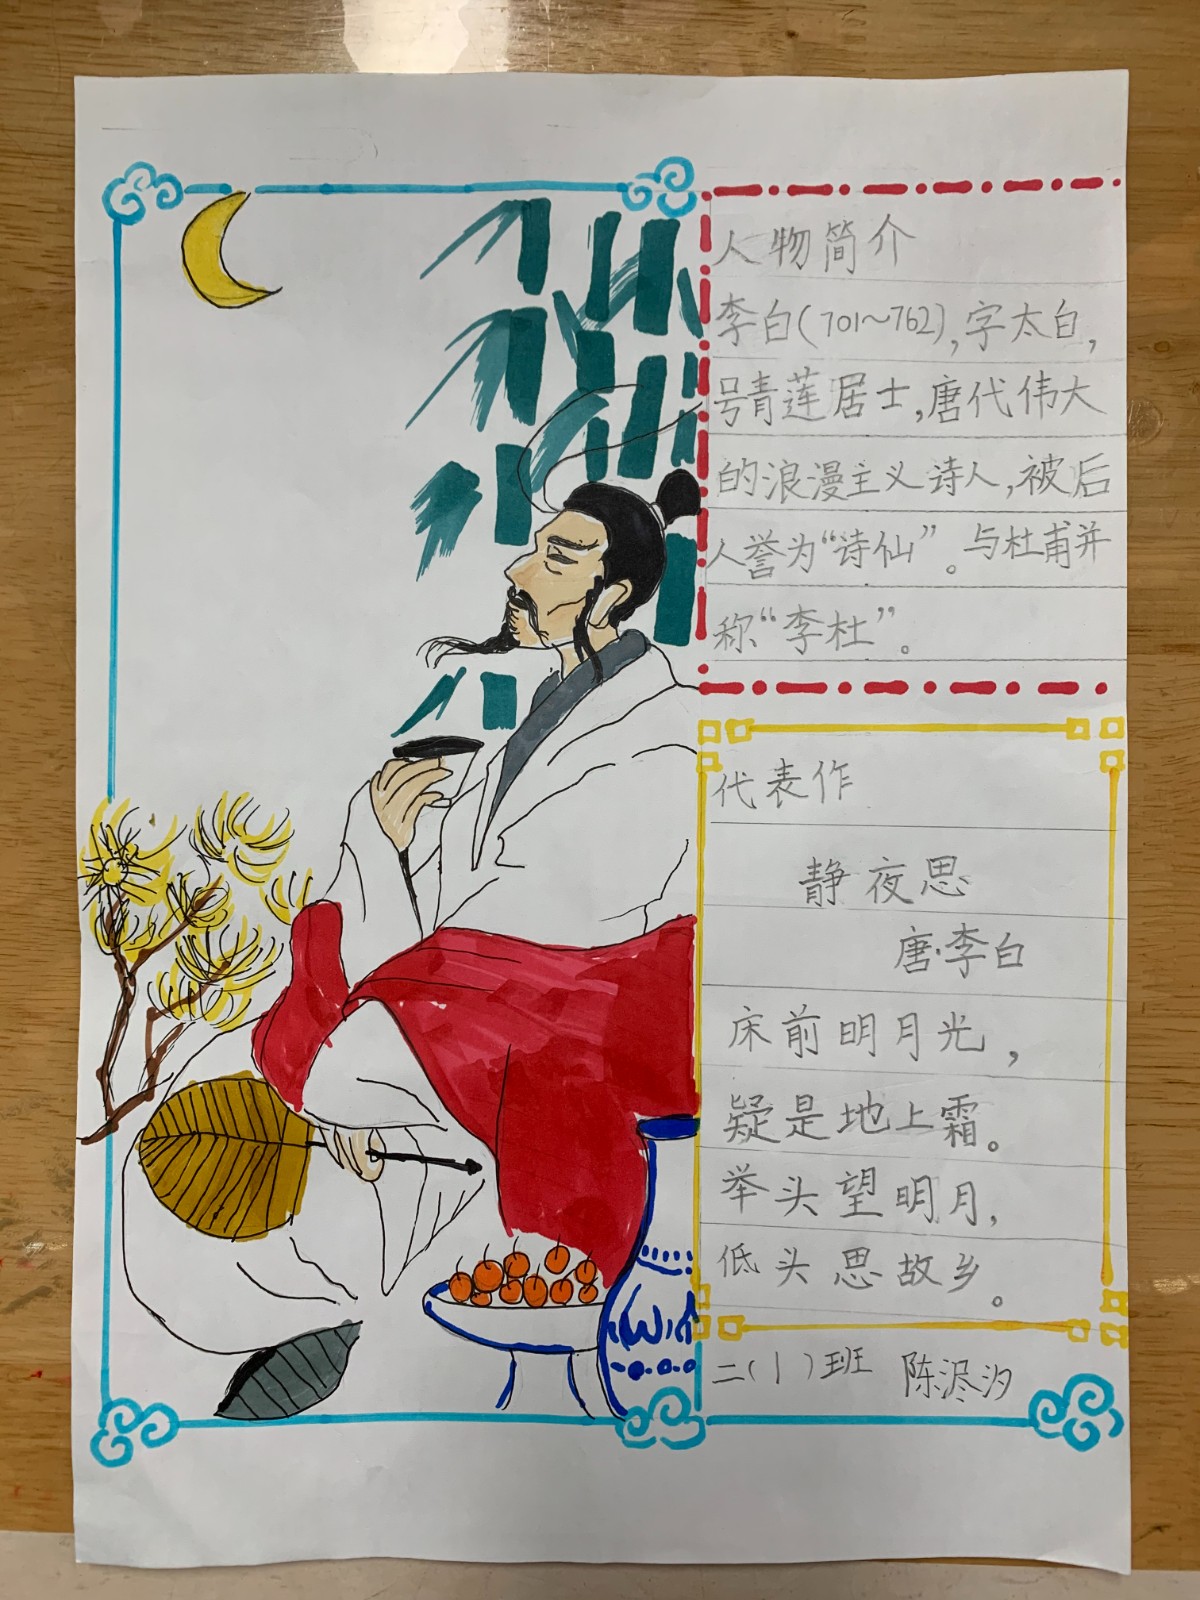 人物简介
李白(701~762),字太白,
号青莲居士,唐代伟大
的浪漫主义诗人,被后
人誉为“诗仙”。与杜甫并
称“李杜”。
代表作
静夜思
唐·李白
床前明月光,
疑是地上霜。
举头望明月,
低头思故乡。
二(1)班 陈浕汐